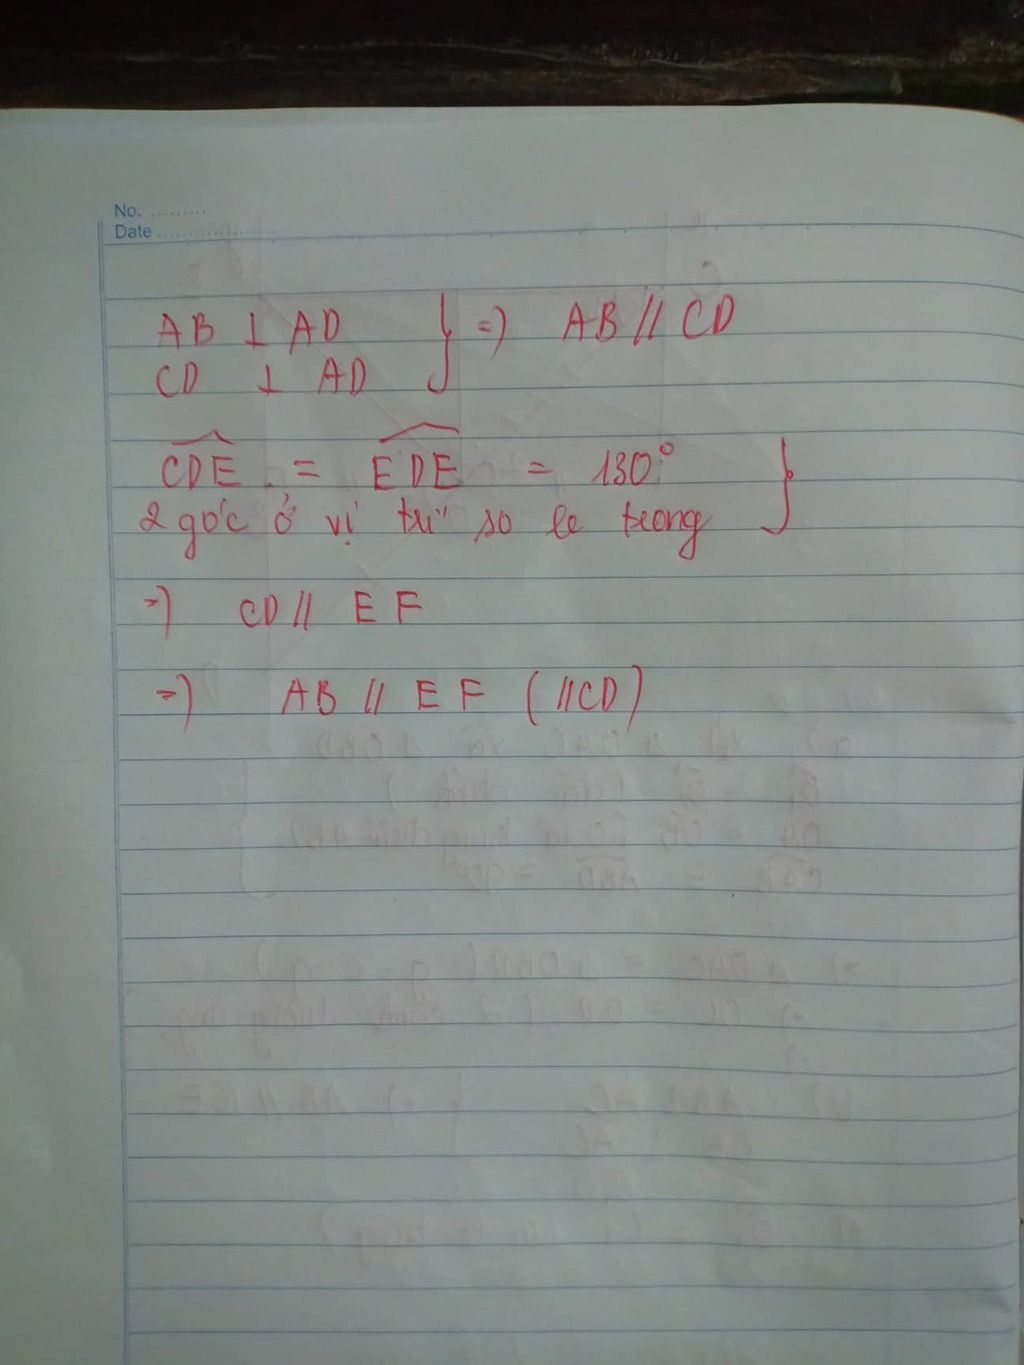 No. .........
Date ......................
AB ⊥ AD } => AB // CD
CD ⊥ AD
CDE = EDE = 130° }
2 góc ở vị trí so le trong
=> CD // EF
=> AB // EF (//CD)